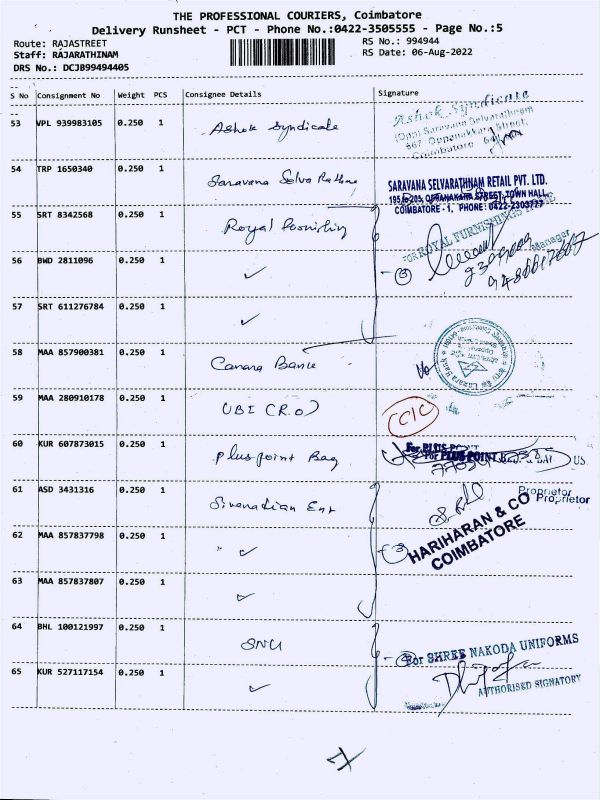 THE PROFESSIONAL COURIERS, Coimbatore
Delivery Runsheet - PCT - Phone No.:0422-3505555 - Page No.:5
Route: RAJASTREET
RS No.: 994944
Staff: RAJARATHINAM
RS Date: 06-Aug-2022
DRS No.: DCJB99494405
S No Consignment No Weight PCS Consignee Details Signature
53 VPL 939983105 0.250 1 Ashok Syndicate
Ashok Syndicate
(Opp) Saravana Selvarathnam
667 Oppanakkara Street,
Coimbatore
54 TRP 1650340 0.250 1 Saravana Selva Rathna
SARAVANA SELVARATHNAM RETAIL PVT. LTD.
195 to 205, OPPANAKARA STREET, TOWN HALL,
COIMBATORE - 1, PHONE: 0422-2303777
55 SRT 8342568 0.250 1 Royal
FOR ROYAL FURNISHINGS
Manager
56 BWD 2811096 0.250 1 ✓
3
57 SRT 611276784 0.250 1 ✓
58 MAA 857900381 0.250 1 Canara Bank
59 MAA 280910178 0.250 1 UBI (R.O)
60 KUR 607873015 0.250 1 plus point Bag
For PLUS POINT
Proprietor
Proprietor
61 ASD 3431316 0.250 1 Sivanadian Ent
HARIHARAN & CO
COIMBATORE
62 MAA 857837798 0.250 1 " ✓
3
63 MAA 857837807 0.250 1 ✓
64 BHL 100121997 0.250 1 SNU
For SHREE NAKODA UNIFORMS
65 KUR 527117154 0.250 1 ✓
AUTHORISED SIGNATORY